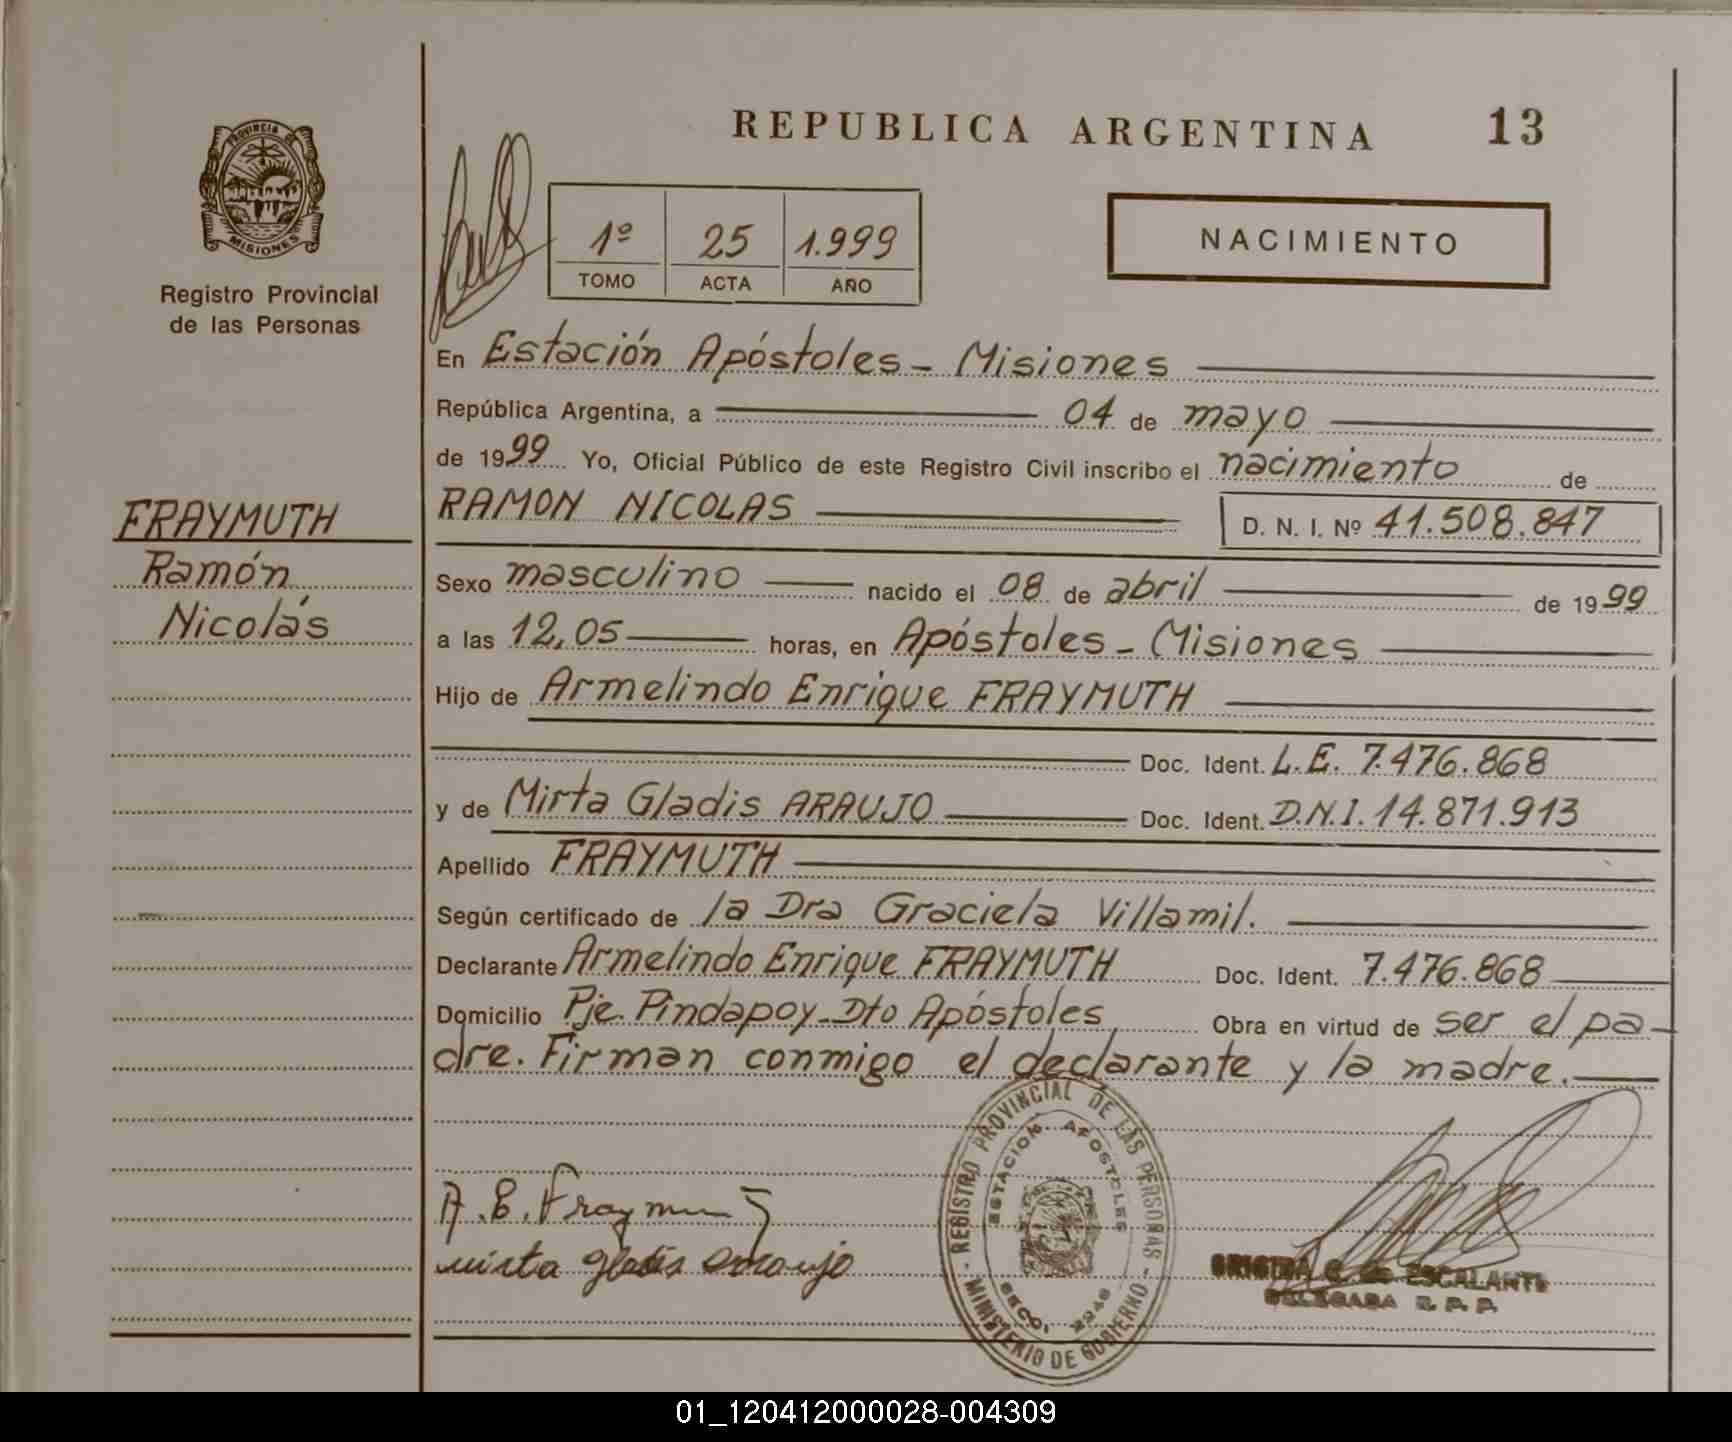 REPUBLICA ARGENTINA 13
PROVINCIA DE
MISIONES
Registro Provincial
de las Personas
1º 25 1.999
TOMO ACTA AÑO
NACIMIENTO
En Estación Apóstoles - Misiones
República Argentina, a 04 de mayo
de 1999 Yo, Oficial Público de este Registro Civil inscribo el nacimiento de
RAMON NICOLAS D. N. I. Nº 41.508.847
FRAYMUTH
Ramón
Nicolás
Sexo masculino nacido el 08 de abril de 1999
a las 12,05 horas, en Apóstoles - Misiones
Hijo de Armelindo Enrique FRAYMUTH
Doc. Ident. L.E. 7.476.868
y de Mirta Gladis ARAUJO Doc. Ident. D.N.I. 14.871.913
Apellido FRAYMUTH
Según certificado de la Dra Graciela Villamil.
Declarante Armelindo Enrique FRAYMUTH Doc. Ident. 7.476.868
Domicilio Pje. Pindapoy - Dto Apóstoles Obra en virtud de ser el pa-
dre. Firman conmigo el declarante y la madre.
REGISTRO PROVINCIAL DE LAS PERSONAS
ESTACION APOSTOLES
MINISTERIO DE GOBIERNO
A. E. Fraymut
mirta gladis Araujo
ESCALANTE
DELEGADA R. P. P.
01_120412000028-004309